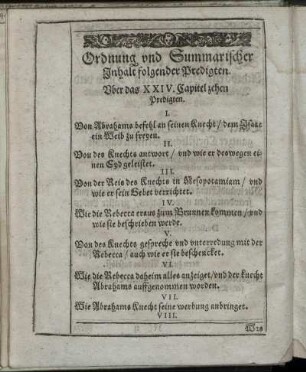 Ordnung vnd Summarischer
Jnhalt folgender Predigten.
Vber das XXIV. Capitel zehen
Predigten.
I.
Von Abrahams befehl an seinen Knecht / dem Jsaac
ein Weib zu freyen.
II.
Von des Knechts antwort / vnd wie er deswegen ei-
nen Eyd geleistet.
III.
Von der Reis des Knechts in Mesopotamiam / vnd
wie er sein Gebet verrichtet.
IV.
Wie die Rebecca eraus zum Brunnen kommen / vnd
wie sie beschrieben werde.
V.
Von des Knechts gespreche vnd vnterredung mit der
Rebecca / auch wie er sie beschencket.
VI.
Wie die Rebecca daheim alles anzeiget / vnd der knecht
Abrahams auffgenommen worden.
VII.
Wie Abrahams Knecht seine werbung anbringet.
VIII.